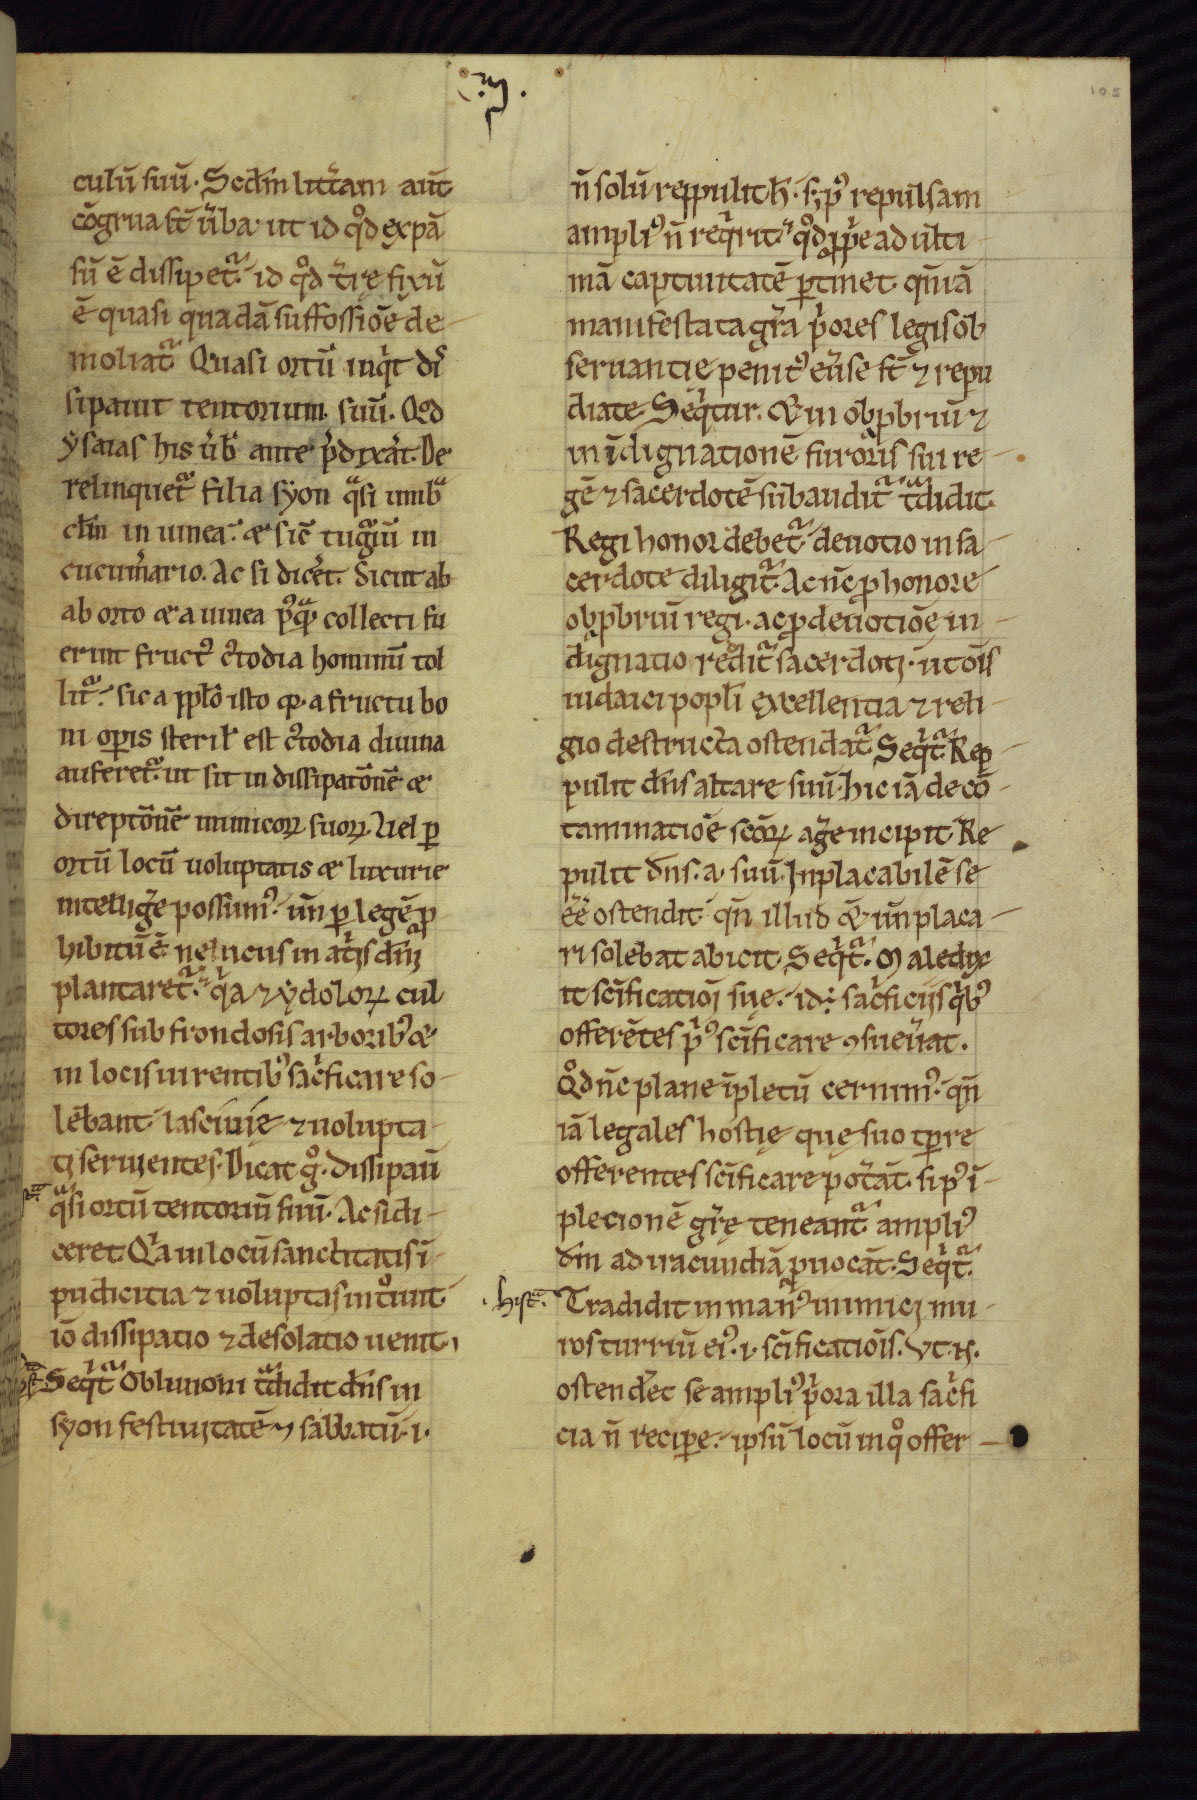 culū suū. Scdm̄ litt̄am aut̄
cōgrua st̄ ūba. ut id qͦd expā
sū ē dissipetᷓ. id qͦd t̄rę fixū
ē quasi quadā suffossiōe de
moliatᷓ Quasi ortū inqͥt di
sipauit tentorium suū. Qd̄
ẏsaias his ūb ante p̄dixat̄. De
relinquetᷓ filia syon qᷓsi umbᷓ
clm̄ in uinea. & sic̄ tugᷓiū in
cucum̄ario. Ac si dicēt. Sicut ab
ab orto & a uinea pꝰqᷓ collecti fu
erint fructꝰ c̄todia hominū tol
litᷓ. sic a pp̄lo isto q̄. a fructu bo
ni oꝑis steril̄ est c̄todia diuina
auferetᷓ. ut sit in dissipatōnē &
direptōnē inimicoꝝ suoꝝ. Uel ꝑ
ortū locū uoluptatis & luxurie
intelliḡe possumꝰ. un̄ ꝑ legē ꝓ
hibitū ē ne lucus in at̄js dm̄j
plantaretᷓ. qͥa ⁊ ẏdoloꝝ cul
tores sub frondosis arboribꝰ &
in locis uirentibꝰ sac̄ficare so
lēbant lasciuię ⁊ uolupta
tj seruientes. Dicat gͦ. dissipau̅
qᷓsi ortū tentoriū suū. Ac si di
ceret Qͥa in locū sanctitatis ī
pudicitia ⁊ uoluptas intͦiuit
iō dissipatio ⁊ desolatio uenit.
Seqͥtᷓ Obliuioni tᷓdidit dn̄s in
syon festiuitatē ⁊ sabbatū. i.
n̄ solū reppulit h̄. sꝫ pꝰ repulsam
ampliꝰ n̄ reqͥrit. qͦd ꝓpͥe ad ulti
mā captiuitatē ꝑtinet. qm̄ iā
manifestata gr̄a pͥores legis ob
seruantię penitꝰ eūse st̄ ⁊ repu
diate. Seqͥtur. Et in obꝓbriū ⁊
in īdignationē furoris sui re
gē ⁊ sacerdotē subauditᷓ tᷓdidit.
Regi honor debetᷓ. deuotio in sa
cerdote diligitᷓ. Ac nc̄ ꝓ honore
obꝓbriū regi. ac ꝓ deuotiōe in
dignatio redditᷓ sacerdotj. ut om̄s
iudaici popl̄i excellentia ⁊ reli
gio destructa ostendatᷓ Seqͥtᷓ. Rep
pulit dn̄s altare suū. hic iā de cō
taminatiōe sc̄oꝝ aḡe incipit. Re
pulit dn̄s. a. suū. Inplacabilē se
eē̄ ostendit qn̄ illud & un̄ placa
ri solebat abicit. Seqͥtᷓ. Maledix
it sc̄ificationj suę. id ÷ sac̄ficijs qͥbꝰ
offerētes pͥꝰ sc̄ificare ꝯsuēuat.
Qͦd nc̄ plane īpletū cernimꝰ. qn̄
iā legales hostię quę suo tꝑre
offerentes sc̄ificare pot̄āt. si pꝰ ī
plecionē gr̄ę teneantᷓ ampliꝰ
dm̄ ad iracundiā ꝓuocāt. Seqͥtᷓ.
.hist.
Tradidit in manꝰ inimicj mu
ros turriū eiꝰ. i. sc̄ificatiōis. Vt. n̄.
ostend̄et se ampliꝰ pͥora illa sac̄fi
cia n̄ reciꝑe. ipsū locū in qͦ offer